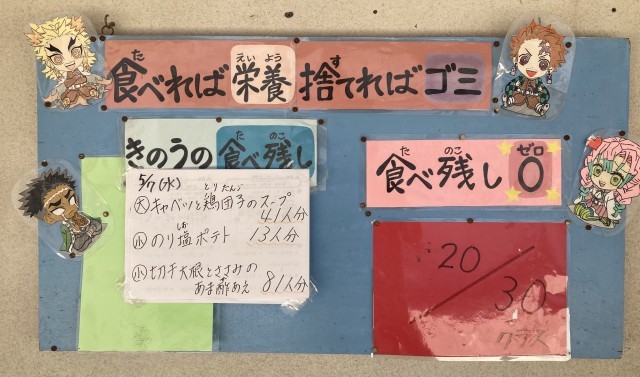 食べれば栄養 捨てればゴミ
た えい よう す
きのうの食べ残し
た のこ
食べ残し0
た のこ ゼロ
5/7(水)
大 キャベツと鶏団子のスープ
とり たんご
41人分
小 のり塩ポテト 13人分
しお
小 切干大根とささみの
あま酢あえ 81人分
20/30
クラス